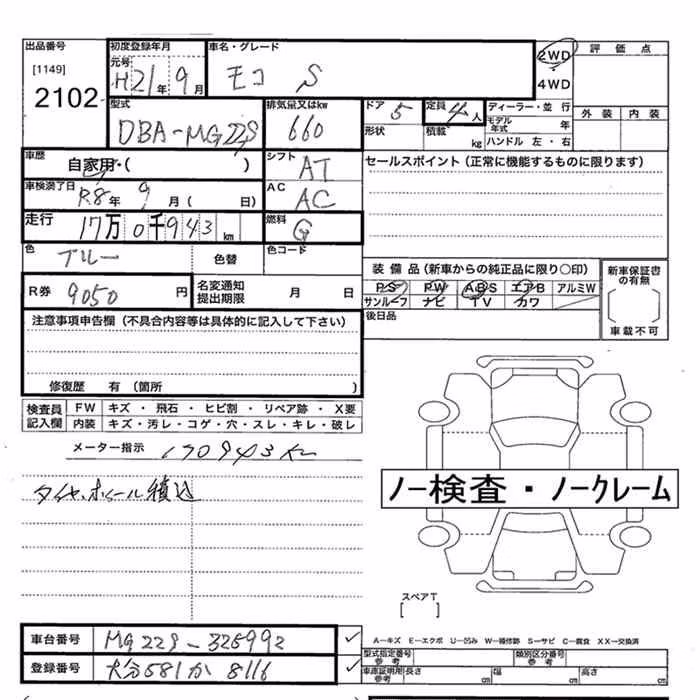 出品番号
[1149]
2102
初度登録年月
元号
H21年9月
車名・グレード
モコ S
2WD
・
4WD
評価点
外装 内装
型式
DBA-MG22S
排気量又はkw
660
ドア 5
形状
定員 4人
積載 kg
ディーラー・並行
モデル年式 年
ハンドル 左・右
車歴
自家用・( )
シフト
AT
セールスポイント(正常に機能するものに限ります)
車検満了日
R8年9月( 日)
AC
AC
走行
17万0千943km
燃料
G
色
ブルー
色替
色コード
装備品(新車からの純正品に限り〇印)
PS PW ABS エアB アルミW
サンルーフ ナビ TV カワ
新車保証書の有無
車載不可
R券 9050円
名変通知
提出期限 月 日
後日品
注意事項申告欄(不具合内容等は具体的に記入して下さい)
修復歴 有(箇所 )
検査員記入欄
FW キズ・飛石・ヒビ割・リペア跡・X要
内装 キズ・汚レ・コゲ・穴・スレ・キレ・破レ
メーター指示 170943K
タイヤ、ホイール積込
ノー検査・ノークレーム
スペアT
[ ]
車台番号 MG22S-325992
登録番号 大分581か8116
A-キズ E-エクボ U-凹み W-補修跡 S-サビ C-腐食 XX-交換済
型式指定番号
参考
類別区分番号
参考
車庫証明用
参考
長さ cm
幅 cm
高さ cm